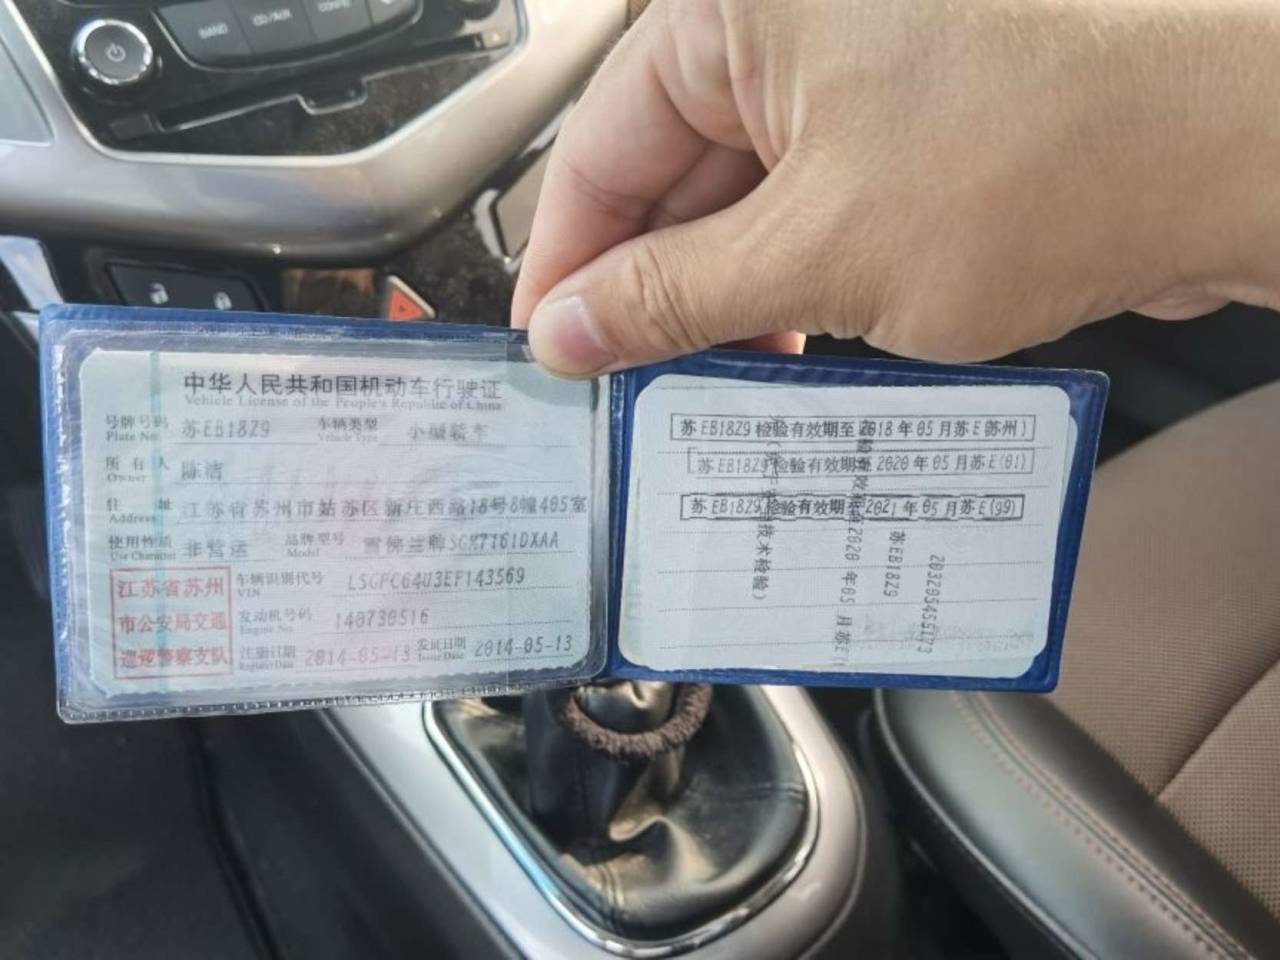 中华人民共和国机动车行驶证
Vehicle License of the People's Republic of China
号牌号码 苏EB18Z9 车辆类型 小型轿车
Plate No. Vehicle Type
所有人 陈洁
Owner
住址 江苏省苏州市姑苏区新庄西路18号8幢405室
Address
使用性质 非营运 品牌型号 雪佛兰牌SGM7161DXAA
Use Character Model
江苏省苏州
市公安局交通
巡逻警察支队
车辆识别代号 LSGPC64U3EF143569
VIN
发动机号码 140730516
Engine No.
注册日期 2014-05-13 发证日期 2014-05-13
Register Date Issue Date
苏EB18Z9 检验有效期至 2018年05月苏E(苏州)
苏EB18Z9 检验有效期至 2020年05月苏E(01)
苏EB18Z9 检验有效期至 2021年05月苏E(99)
技术检验)
2020年05月苏E(
苏EB18Z9